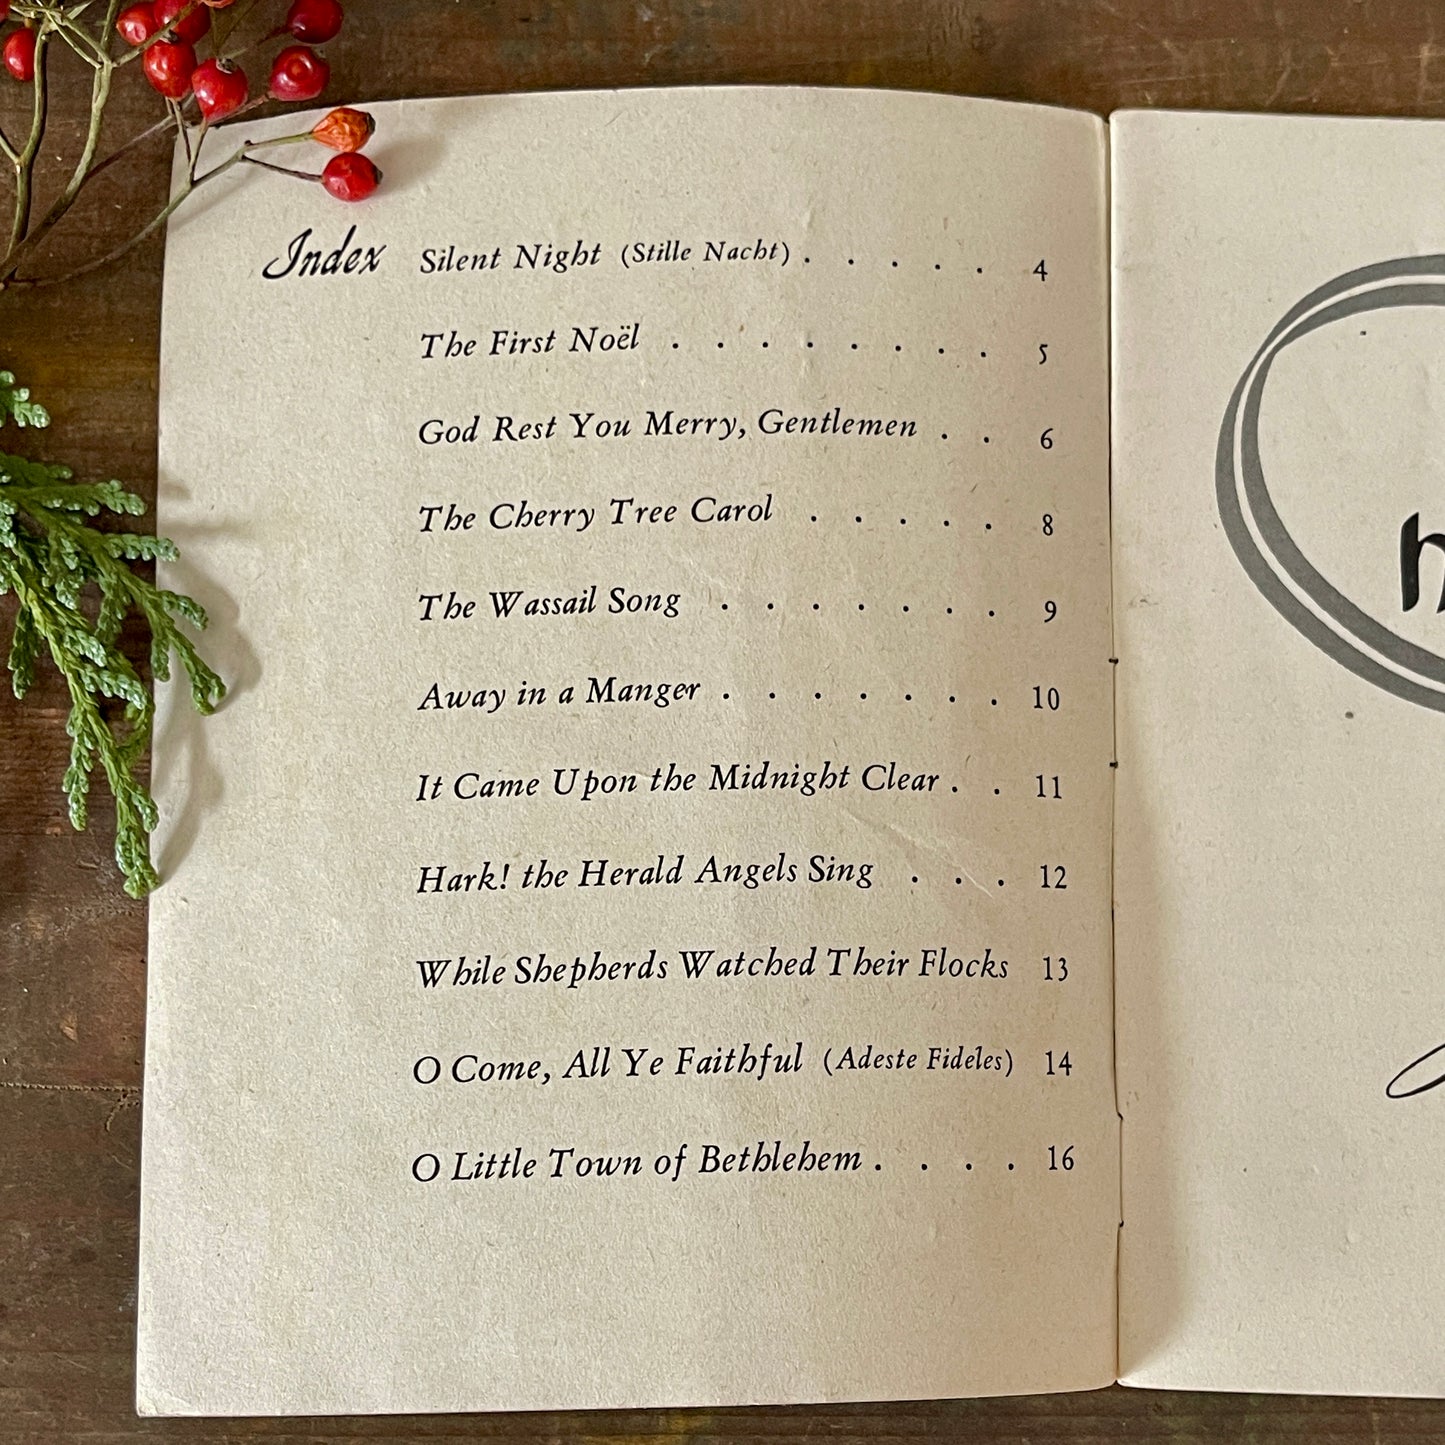 Index Silent Night (Stille Nacht) . . . . . 4
The First Noël . . . . . . . . 5
God Rest You Merry, Gentlemen . . 6
The Cherry Tree Carol . . . . . 8
The Wassail Song . . . . . . . 9
Away in a Manger . . . . . . . 10
It Came Upon the Midnight Clear . . 11
Hark! the Herald Angels Sing . . . 12
While Shepherds Watched Their Flocks 13
O Come, All Ye Faithful (Adeste Fideles) 14
O Little Town of Bethlehem . . . . 16